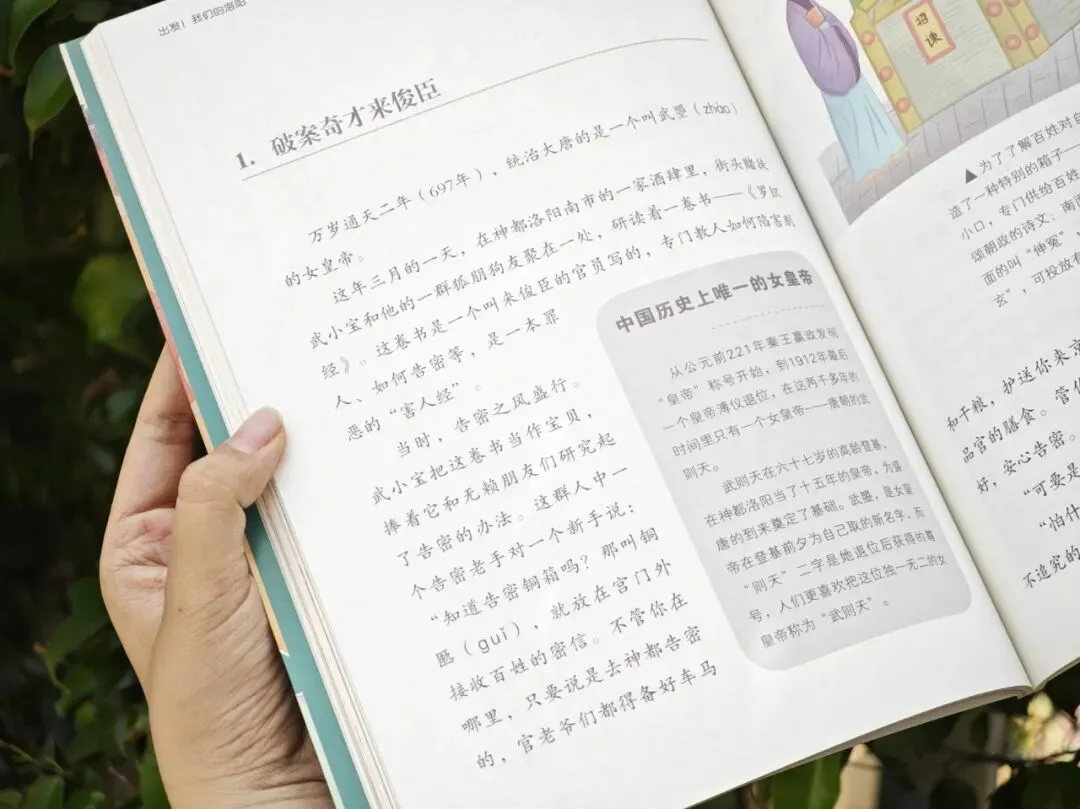 出发！我们的洛阳
1. 破案奇才来俊臣
万岁通天二年（697年），统治大唐的是一个叫武曌（zhào）
的女皇帝。
这年三月的一天，在神都洛阳南市的一家酒肆里，街头赌徒
武小宝和他的一群狐朋狗友聚在一处，研读着一卷书——《罗织
经》。这卷书是一个叫来俊臣的官员写的，专门教人如何陷害别
人、如何告密等，是一本罪
恶的“害人经”。
当时，告密之风盛行。
武小宝把这卷书当作宝贝，
捧着它和无赖朋友们研究起
了告密的办法。这群人中一
个告密老手对一个新手说：
“知道告密铜箱吗？那叫铜
匦（guǐ），就放在宫门外
接收百姓的密信。不管你在
哪里，只要说是去神都告密
的，官老爷们都得备好车马
中国历史上唯一的女皇帝
从公元前221年秦王嬴政发明
“皇帝”称号开始，到1912年最后
一个皇帝溥仪退位，在这两千多年的
时间里只有一个女皇帝——唐朝的武
则天。
武则天在六十七岁的高龄登基，
在神都洛阳当了十五年的皇帝，为盛
唐的到来奠定了基础。武曌，是女皇
帝在登基前夕为自己取的新名字，而
“则天”二字是她退位后获得的尊
号，人们更喜欢把这位独一无二的女
皇帝称为“武则天”。
招谏
▲为了了解百姓对自
造了一种特别的箱子——
小口，专门供给百姓
颂朝政的诗文；南面
面的叫“伸冤”，
玄”，可投放有
和干粮，护送你来京
品官的膳食。管你
好，安心告密。
“可要是
“怕什
不追究的